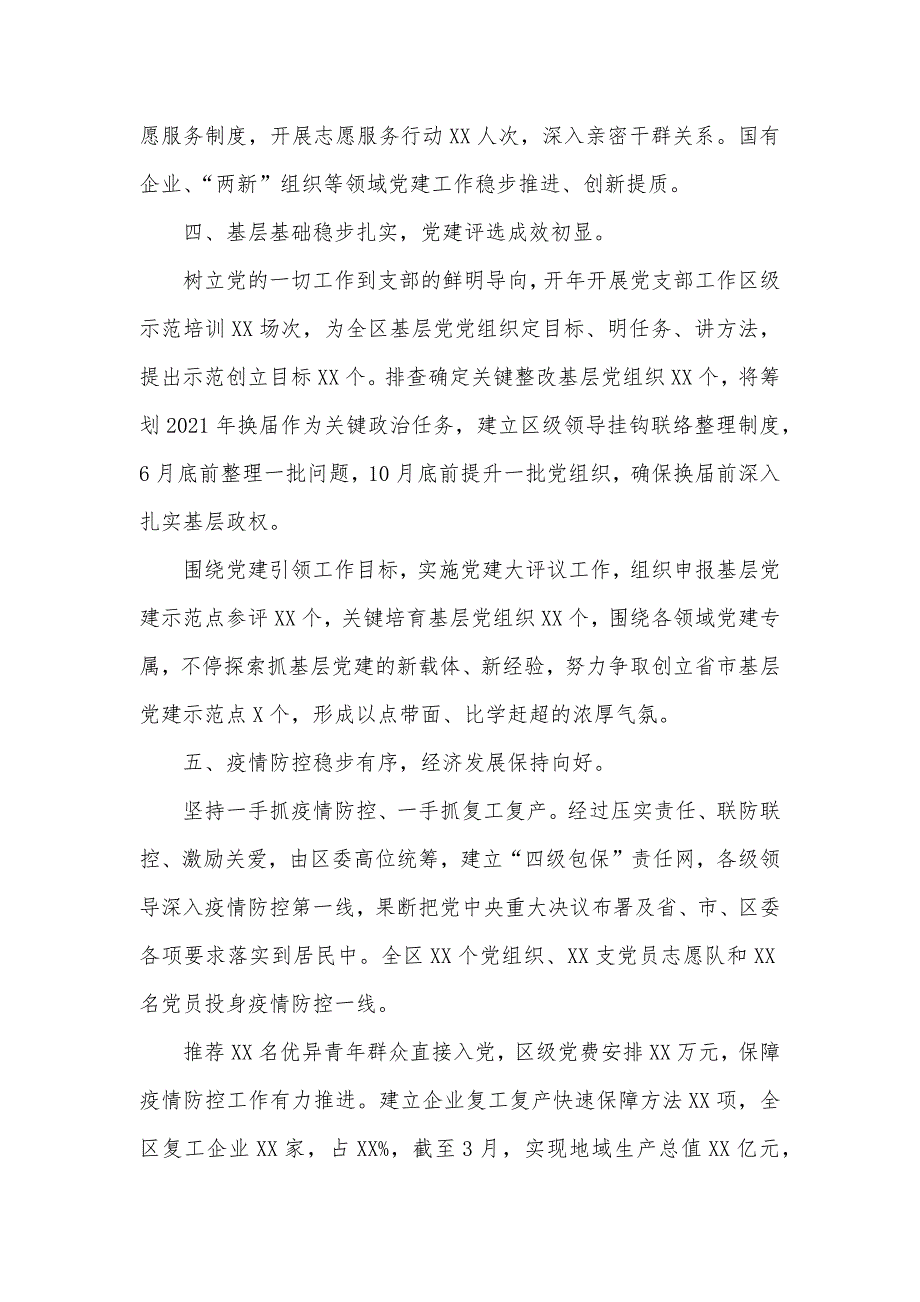 愿服务制度，开展志愿服务行动 XX 人次，深入亲密干群关系。国有
企业、“两新”组织等领域党建工作稳步推进、创新提质。
四、基层基础稳步扎实，党建评选成效初显。
树立党的一切工作到支部的鲜明导向，开年开展党支部工作区级
示范培训 XX 场次，为全区基层党党组织定目标、明任务、讲方法，
提出示范创立目标 XX 个。排查确定关键整改基层党组织 XX 个，将筹
划 2021 年换届作为关键政治任务，建立区级领导挂钩联络整理制度，
6 月底前整理一批问题，10 月底前提升一批党组织，确保换届前深入
扎实基层政权。
围绕党建引领工作目标，实施党建大评议工作，组织申报基层党
建示范点参评 XX 个，关键培育基层党组织 XX 个，围绕各领域党建专
属，不停探索抓基层党建的新载体、新经验，努力争取创立省市基层
党建示范点 X 个，形成以点带面、比学赶超的浓厚气氛。
五、疫情防控稳步有序，经济发展保持向好。
坚持一手抓疫情防控、一手抓复工复产。经过压实责任、联防联
控、激励关爱，由区委高位统筹，建立“四级包保”责任网，各级领
导深入疫情防控第一线，果断把党中央重大决议布署及省、市、区委
各项要求落实到居民中。全区 XX 个党组织、XX 支党员志愿队和 XX
名党员投身疫情防控一线。
推荐 XX 名优异青年群众直接入党，区级党费安排 XX 万元，保障
疫情防控工作有力推进。建立企业复工复产快速保障方法 XX 项，全
区复工企业 XX 家，占 XX%，截至 3 月，实现地域生产总值 XX 亿元，